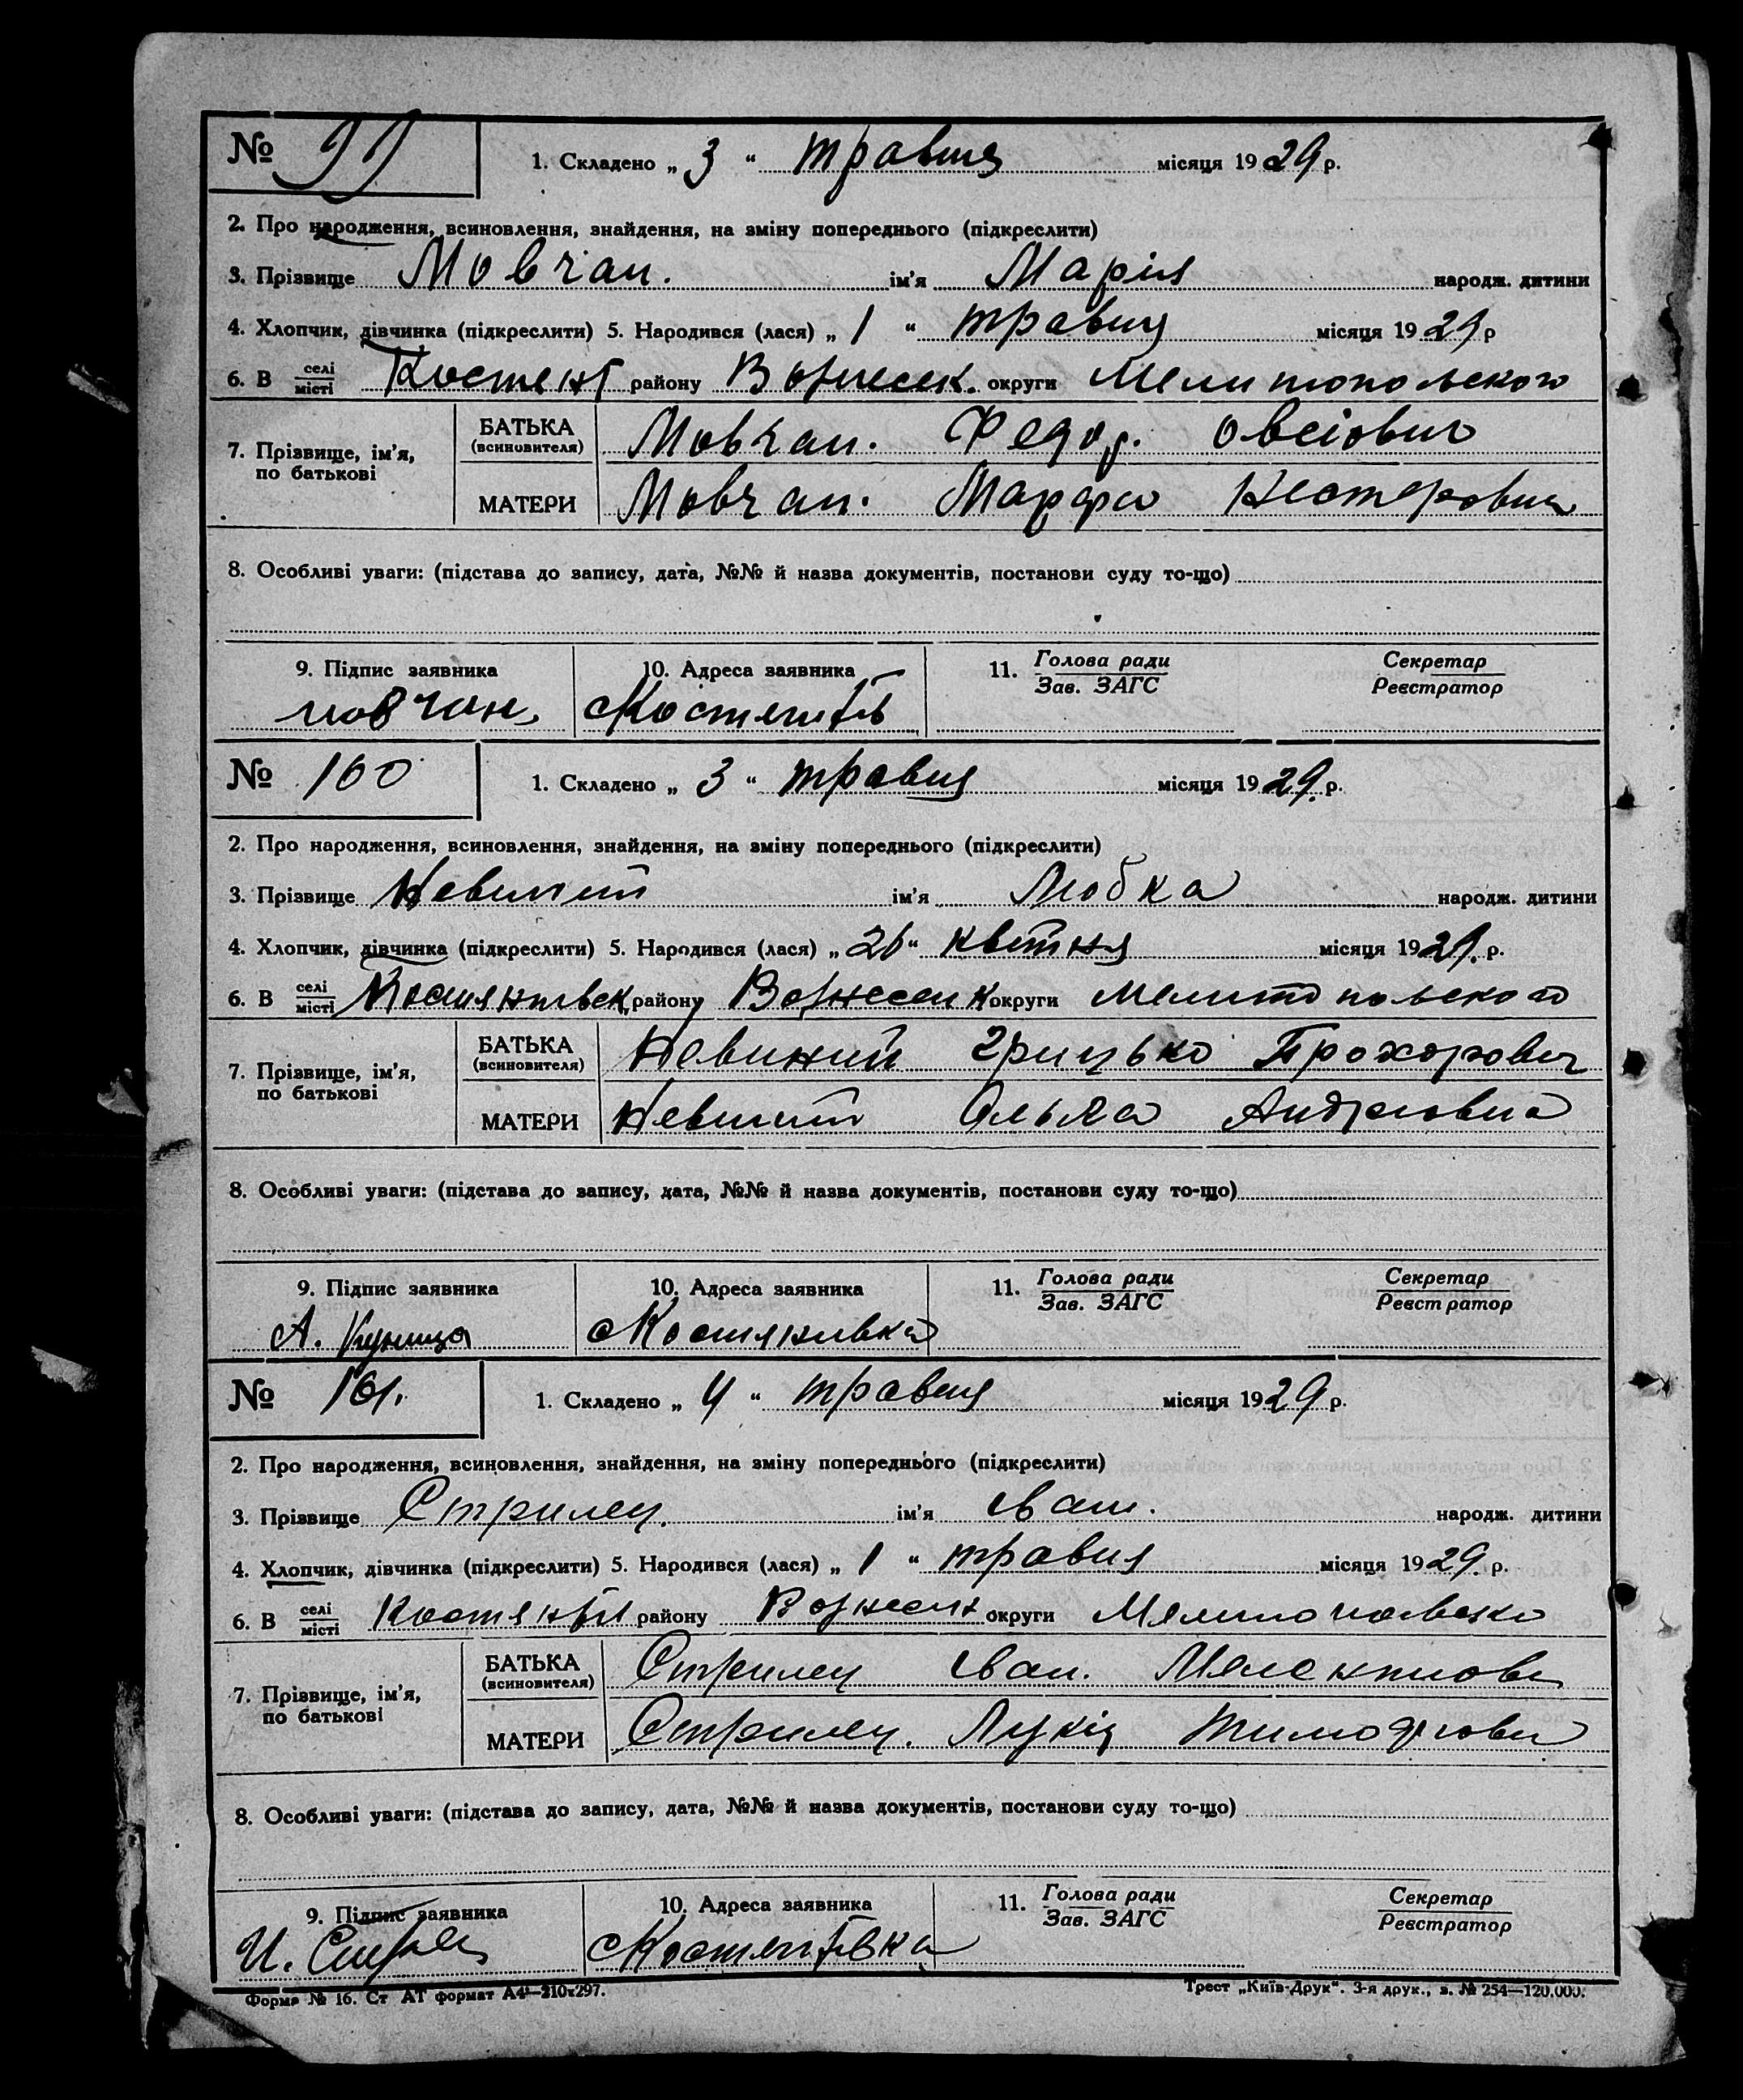 № 99 1. Складено „3“ травця місяця 1929 р.
2. Про народження, всиновлення, знайдення, на зміну попереднього (підкреслити)
3. Прізвище Мовчан. ім'я Марія народж. дитини
4. Хлопчик, дівчинка (підкреслити) 5. Народився (лася) „1“ травця місяця 1929 р
6. В селі/місті району Вознесен. округи Мелитопольского
7. Прізвище, ім'я, по батькові
БАТЬКА (всиновителя) Мовчан. Федор. Овсіович
МАТЕРИ Мовчан. Марфа Несторовна
8. Особливі уваги: (підстава до запису, дата, №№ й назва документів, постанови суду то-що)
9. Підпис заявника 10. Адреса заявника 11. Голова ради/Зав. ЗАГС Секретар/Реєстратор
мовчан
№ 100 1. Складено „3“ травця місяця 1929. р.
2. Про народження, всиновлення, знайдення, на зміну попереднього (підкреслити)
3. Прізвище ім'я Любка народж. дитини
4. Хлопчик, дівчинка (підкреслити) 5. Народився (лася) „26“ квітня місяця 1929. р.
6. В селі/місті району Вознесенк округи Мелитопольского
7. Прізвище, ім'я, по батькові
БАТЬКА (всиновителя) Невиний Грицько Прохорович
МАТЕРИ Ольга Андріовна
8. Особливі уваги: (підстава до запису, дата, №№ й назва документів, постанови суду то-що)
9. Підпис заявника 10. Адреса заявника 11. Голова ради/Зав. ЗАГС Секретар/Реєстратор
А. Куница Костянтивка
№ 101. 1. Складено „4“ травця місяця 1929 р.
2. Про народження, всиновлення, знайдення, на зміну попереднього (підкреслити)
3. Прізвище Стрилец. ім'я Іван. народж. дитини
4. Хлопчик, дівчинка (підкреслити) 5. Народився (лася) „1“ травця місяця 1929. р.
6. В селі/місті району Вознесен округи
7. Прізвище, ім'я, по батькові
БАТЬКА (всиновителя) Стрилец Іван.
МАТЕРИ Стрилец. Лукія
8. Особливі уваги: (підстава до запису, дата, №№ й назва документів, постанови суду то-що)
9. Підпис заявника 10. Адреса заявника 11. Голова ради/Зав. ЗАГС Секретар/Реєстратор
И. Костентівка
Форма № 16. Ст АТ формат А4—210х297. Трест „Київ-Друк“. 3-я друк., з. № 254—120.000.